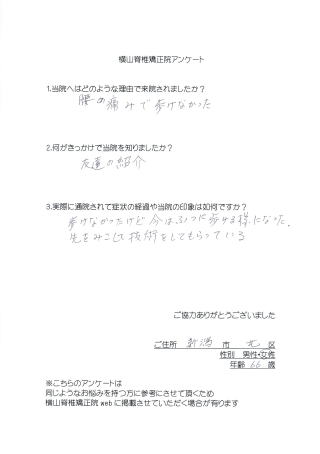 横山脊椎矯正院アンケート
1.当院へはどのような理由で来院されましたか？
腰の痛みで歩けなかった
2.何がきっかけで当院を知りましたか？
友達の紹介
3.実際に通院されて症状の経過や当院の印象は如何ですか？
歩けなかったけど今はふつうに歩ける様になった。
先をみこして技術をしてもらっている
ご協力ありがとうございました
ご住所 新潟 市 北 区
性別 男性・女性
年齢 66 歳
※こちらのアンケートは
同じようなお悩みを持つ方に参考にさせて頂くため
横山脊椎矯正院webに掲載させていただく場合が有ります